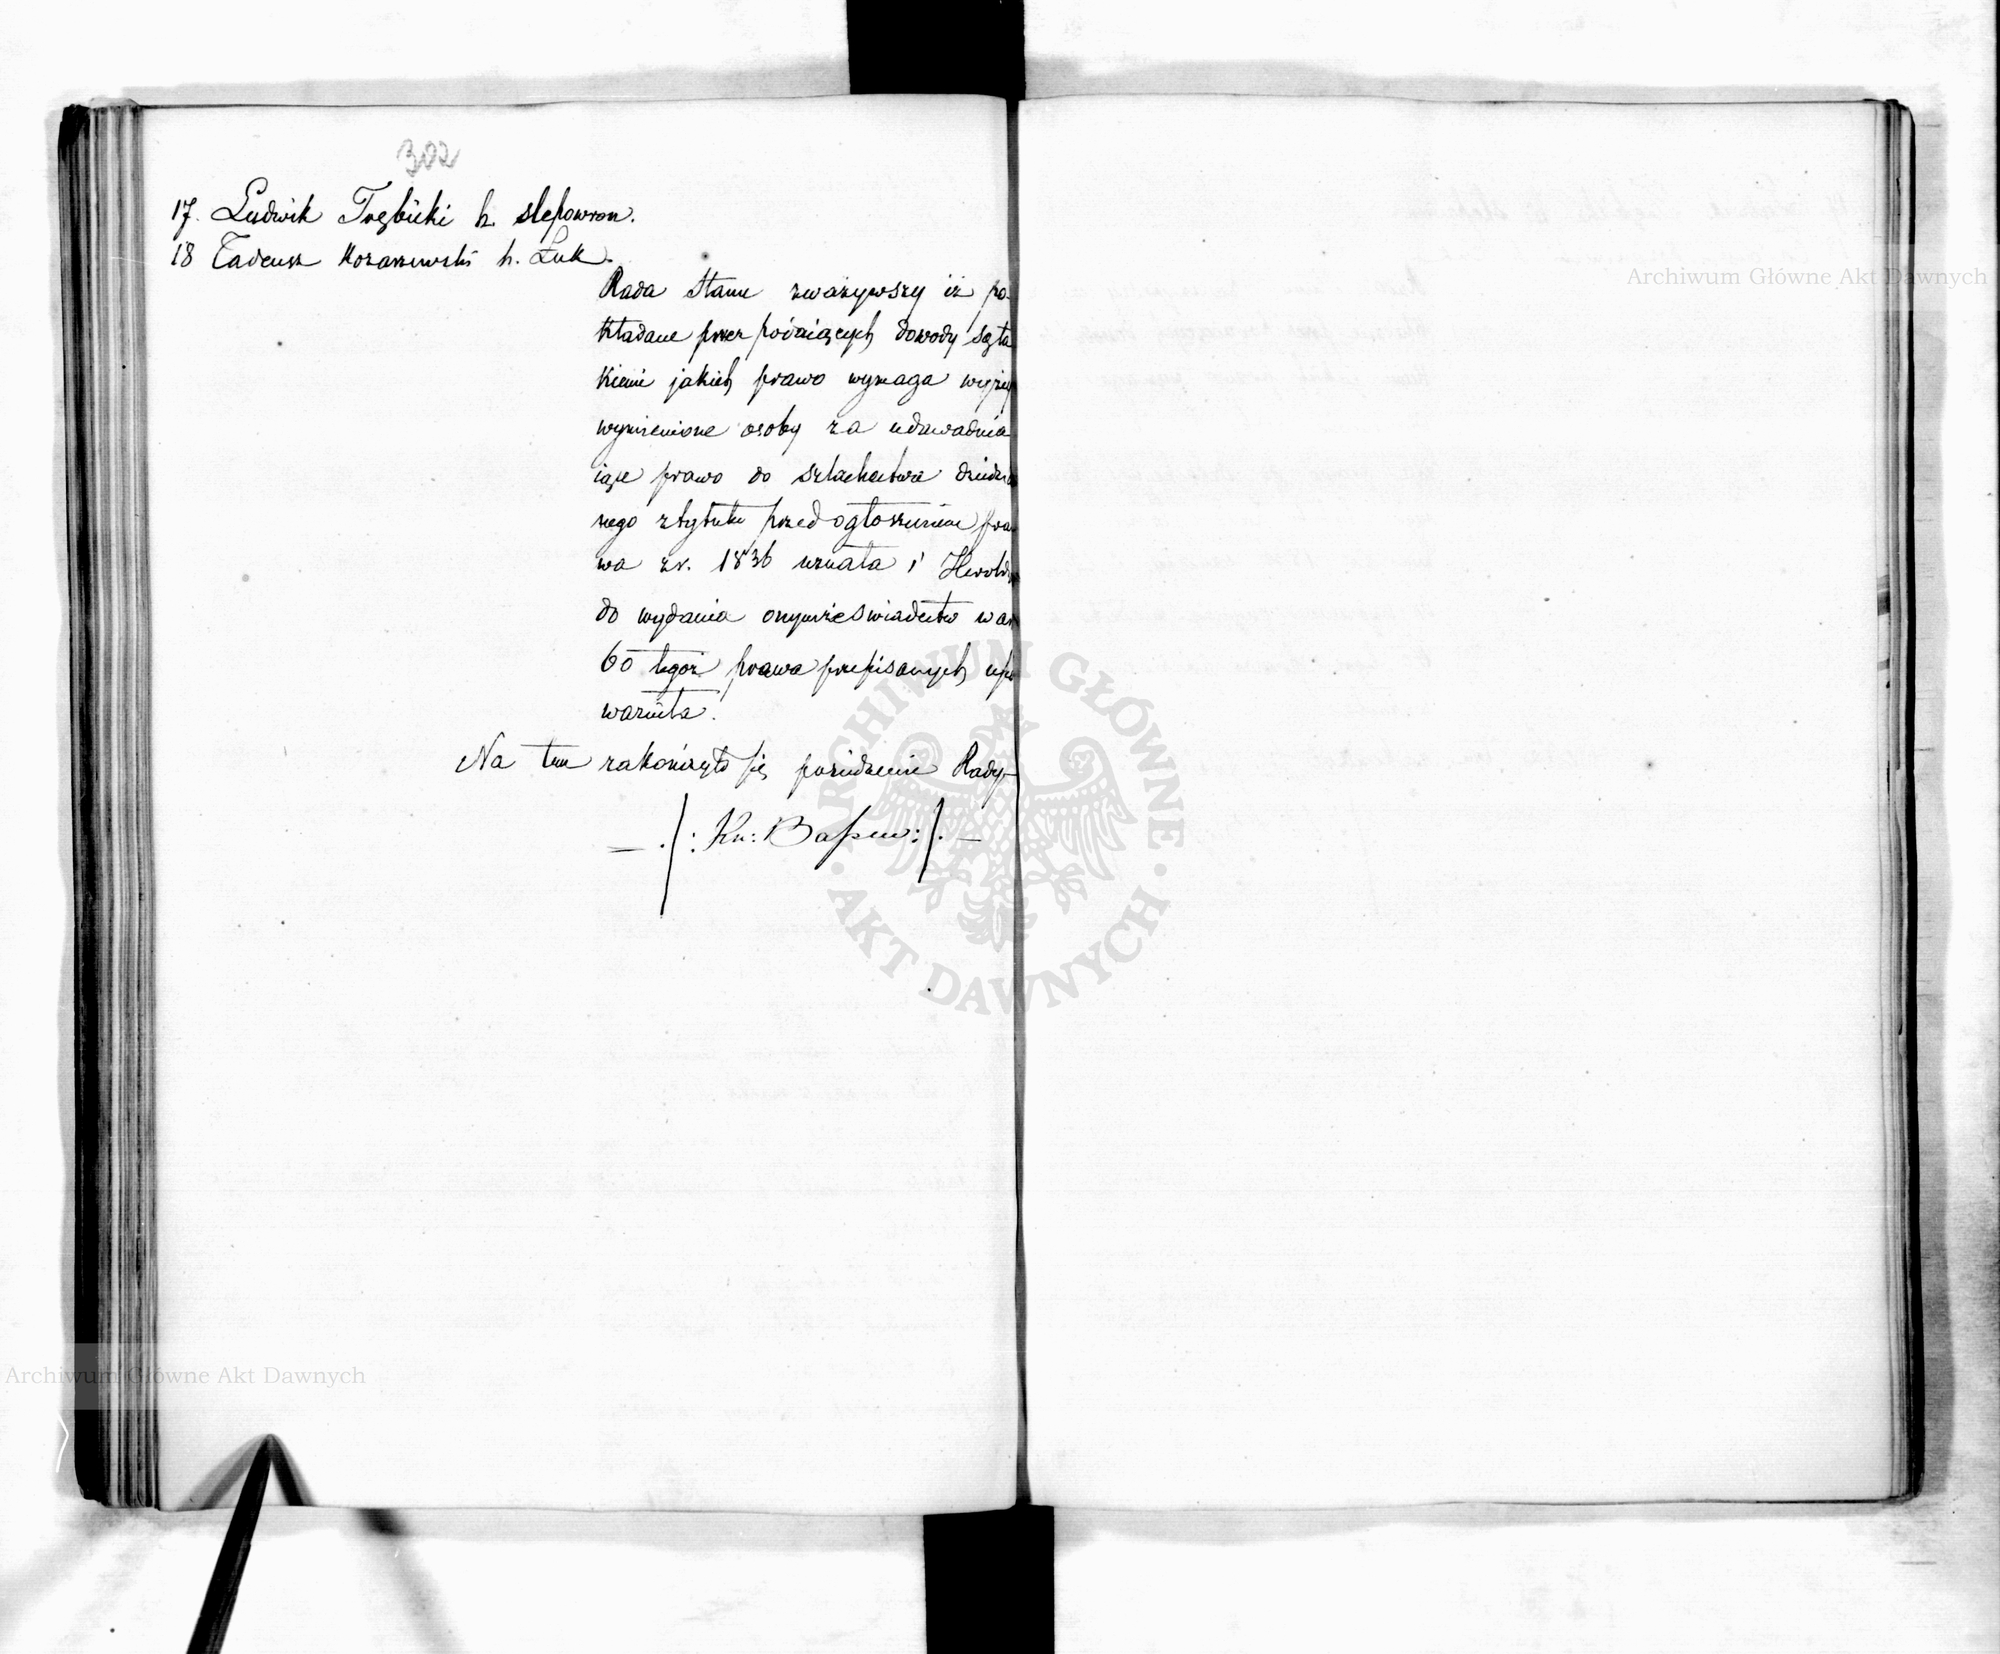 302
17. Ludwik Trębicki h. slepowron.
18 Tadeusz h. Łuk.
Rada Stanu zważywszy iż po-
kładane przez dowody są ta
kiemi jakich prawo wymaga wyżey
wymienione osoby za udawadnia
iące prawo do szlachectwa dziedzi
nego ztytułu przed ogłoszeniem pra
wa z r. 1836 uznała i Herold
do wydania onymże swiadectw w ar
60 tegoż prawa przepisanych upo
wazniła.
Na tem zakończyło się posiedzenie Rady.
Archiwum Główne Akt Dawnych
ARCHIWUM GŁÓWNE
AKT DAWNYCH
Archiwum Główne Akt Dawnych